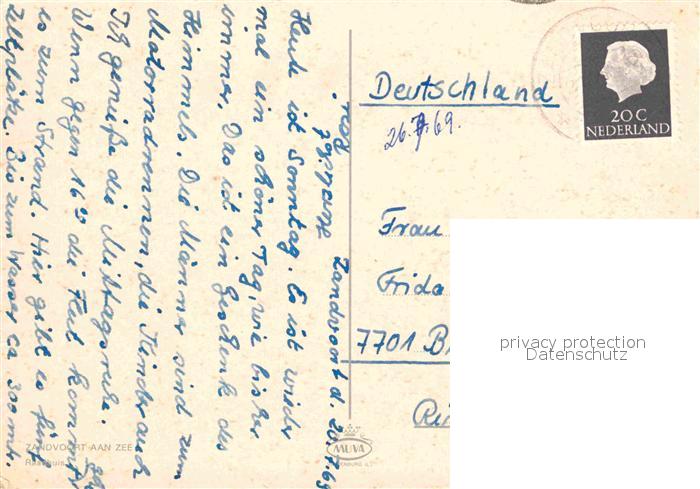 Zandvoort d. 20.7.69
Heute ist Sonntag. Es ist wieder
mal ein schöner Tag, wie bisher
immer. Das ist ein Geschenk des
Himmels. Die Männer sind zum
Motorradrennen, die Kinder auch
Ich genieße die Mittagsruhe.
Wenn gegen 16 00 die Flut kommt
es zum Strand. Hier gibt es fünf
Zeltplätze. Bis zum Wasser ca 300 mtr.
Deutschland
26.7.69.
20 C
NEDERLAND
Frau
Frida
7701 B
privacy protection
Datenschutz
MUVA
ZANDVOORT AAN ZEE